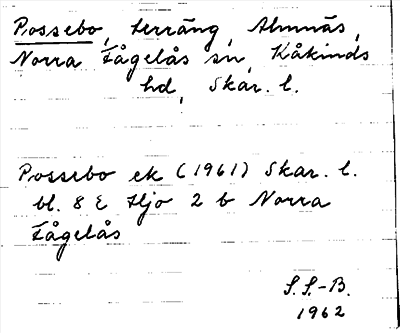 Possebo, terräng, Almnäs,
Norra Fågelås sn, Kåkinds
hd, Skar. l.
Possebo ek (1961) Skar. l.
bl. 8 E Hjo 2 b Norra
Fågelås
S.S.-B.
1962